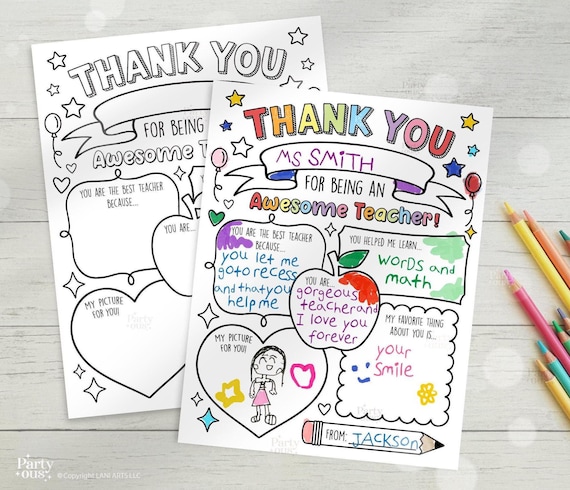 THANK YOU
FOR BEING
Awesome T
YOU ARE THE BEST TEACHER
BECAUSE...
YOU ARE...
MY PICTURE
FOR YOU!
THANK YOU
MS SMITH
FOR BEING AN
Awesome Teacher!
YOU ARE THE BEST TEACHER
BECAUSE...
you let me
go to recess
and that you
help me
YOU HELPED ME LEARN...
words and
math
YOU ARE...
gorgeous
teacher and
I love you
forever
MY PICTURE
FOR YOU!
MY FAVORITE THING
ABOUT YOU IS...
your
smile
FROM: JACKSON
Party
OUS!
© Copyright LANI ARTS LLC